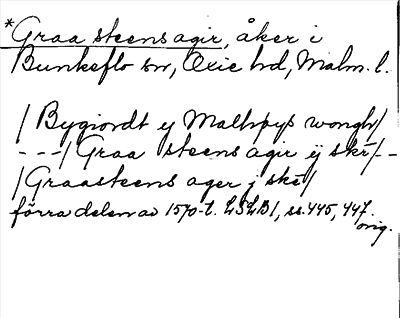 *Graa steens agir, åker i
Bunkeflo sn, Oxie hd, Malm. l.
/Bygiordt ij Malthpys wongh/
---/Graa steens agir ij skr/--
/Graasteens ager j ske/
förra delen av 1570-t. LSLB1, ss. 445, 447.
orig.